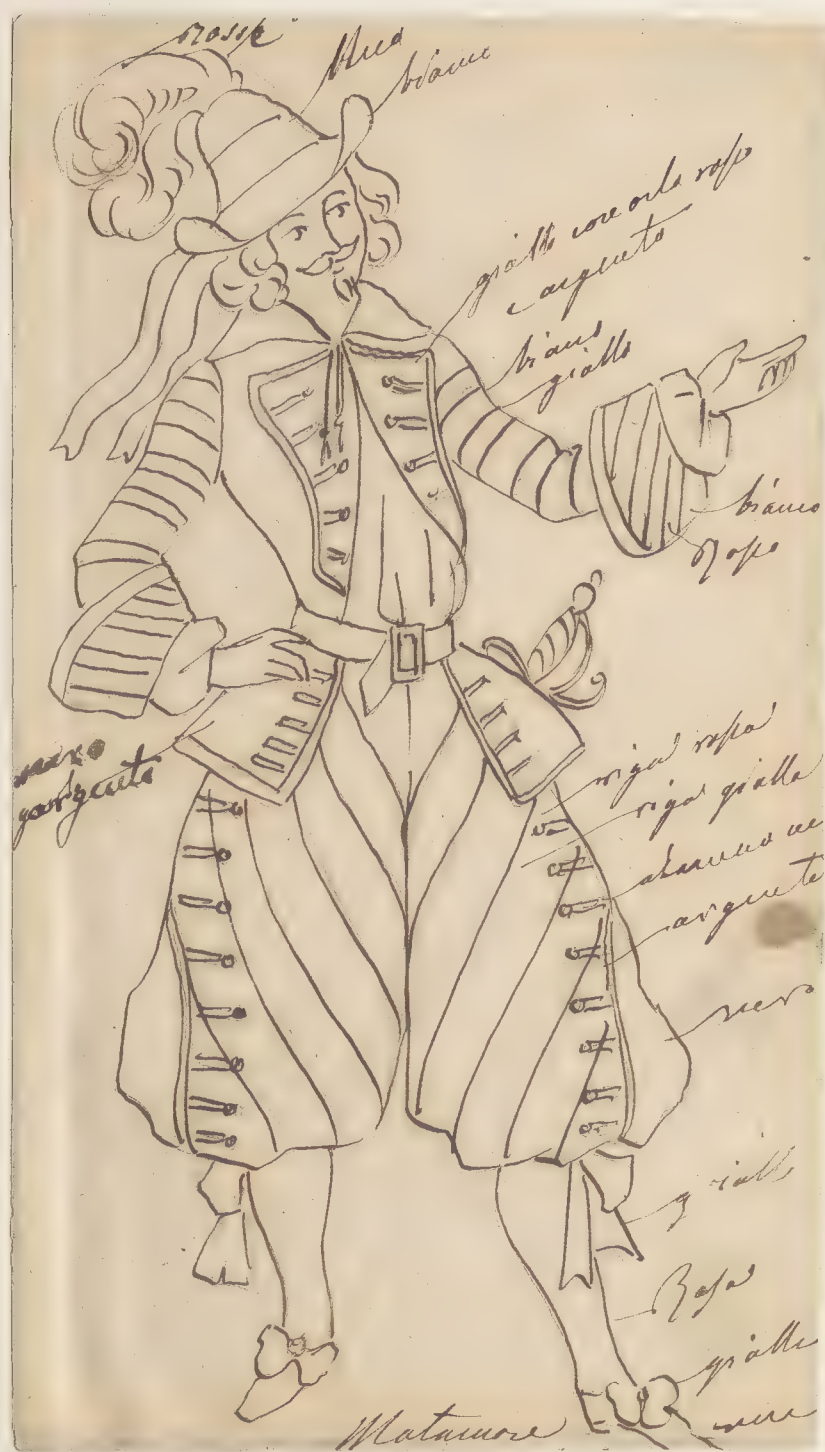 Rosse
bianco
giallo con orlo roso
e argento
bianco
giallo
bianco
Roso
nero
argento
riga rosa
riga gialla
argento
nero
giallo
Rosa
giallo
nero
Matamore